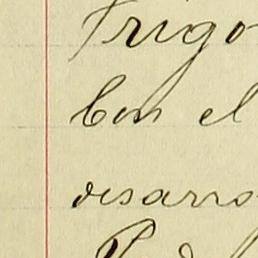 Frigo
Con el
desarro